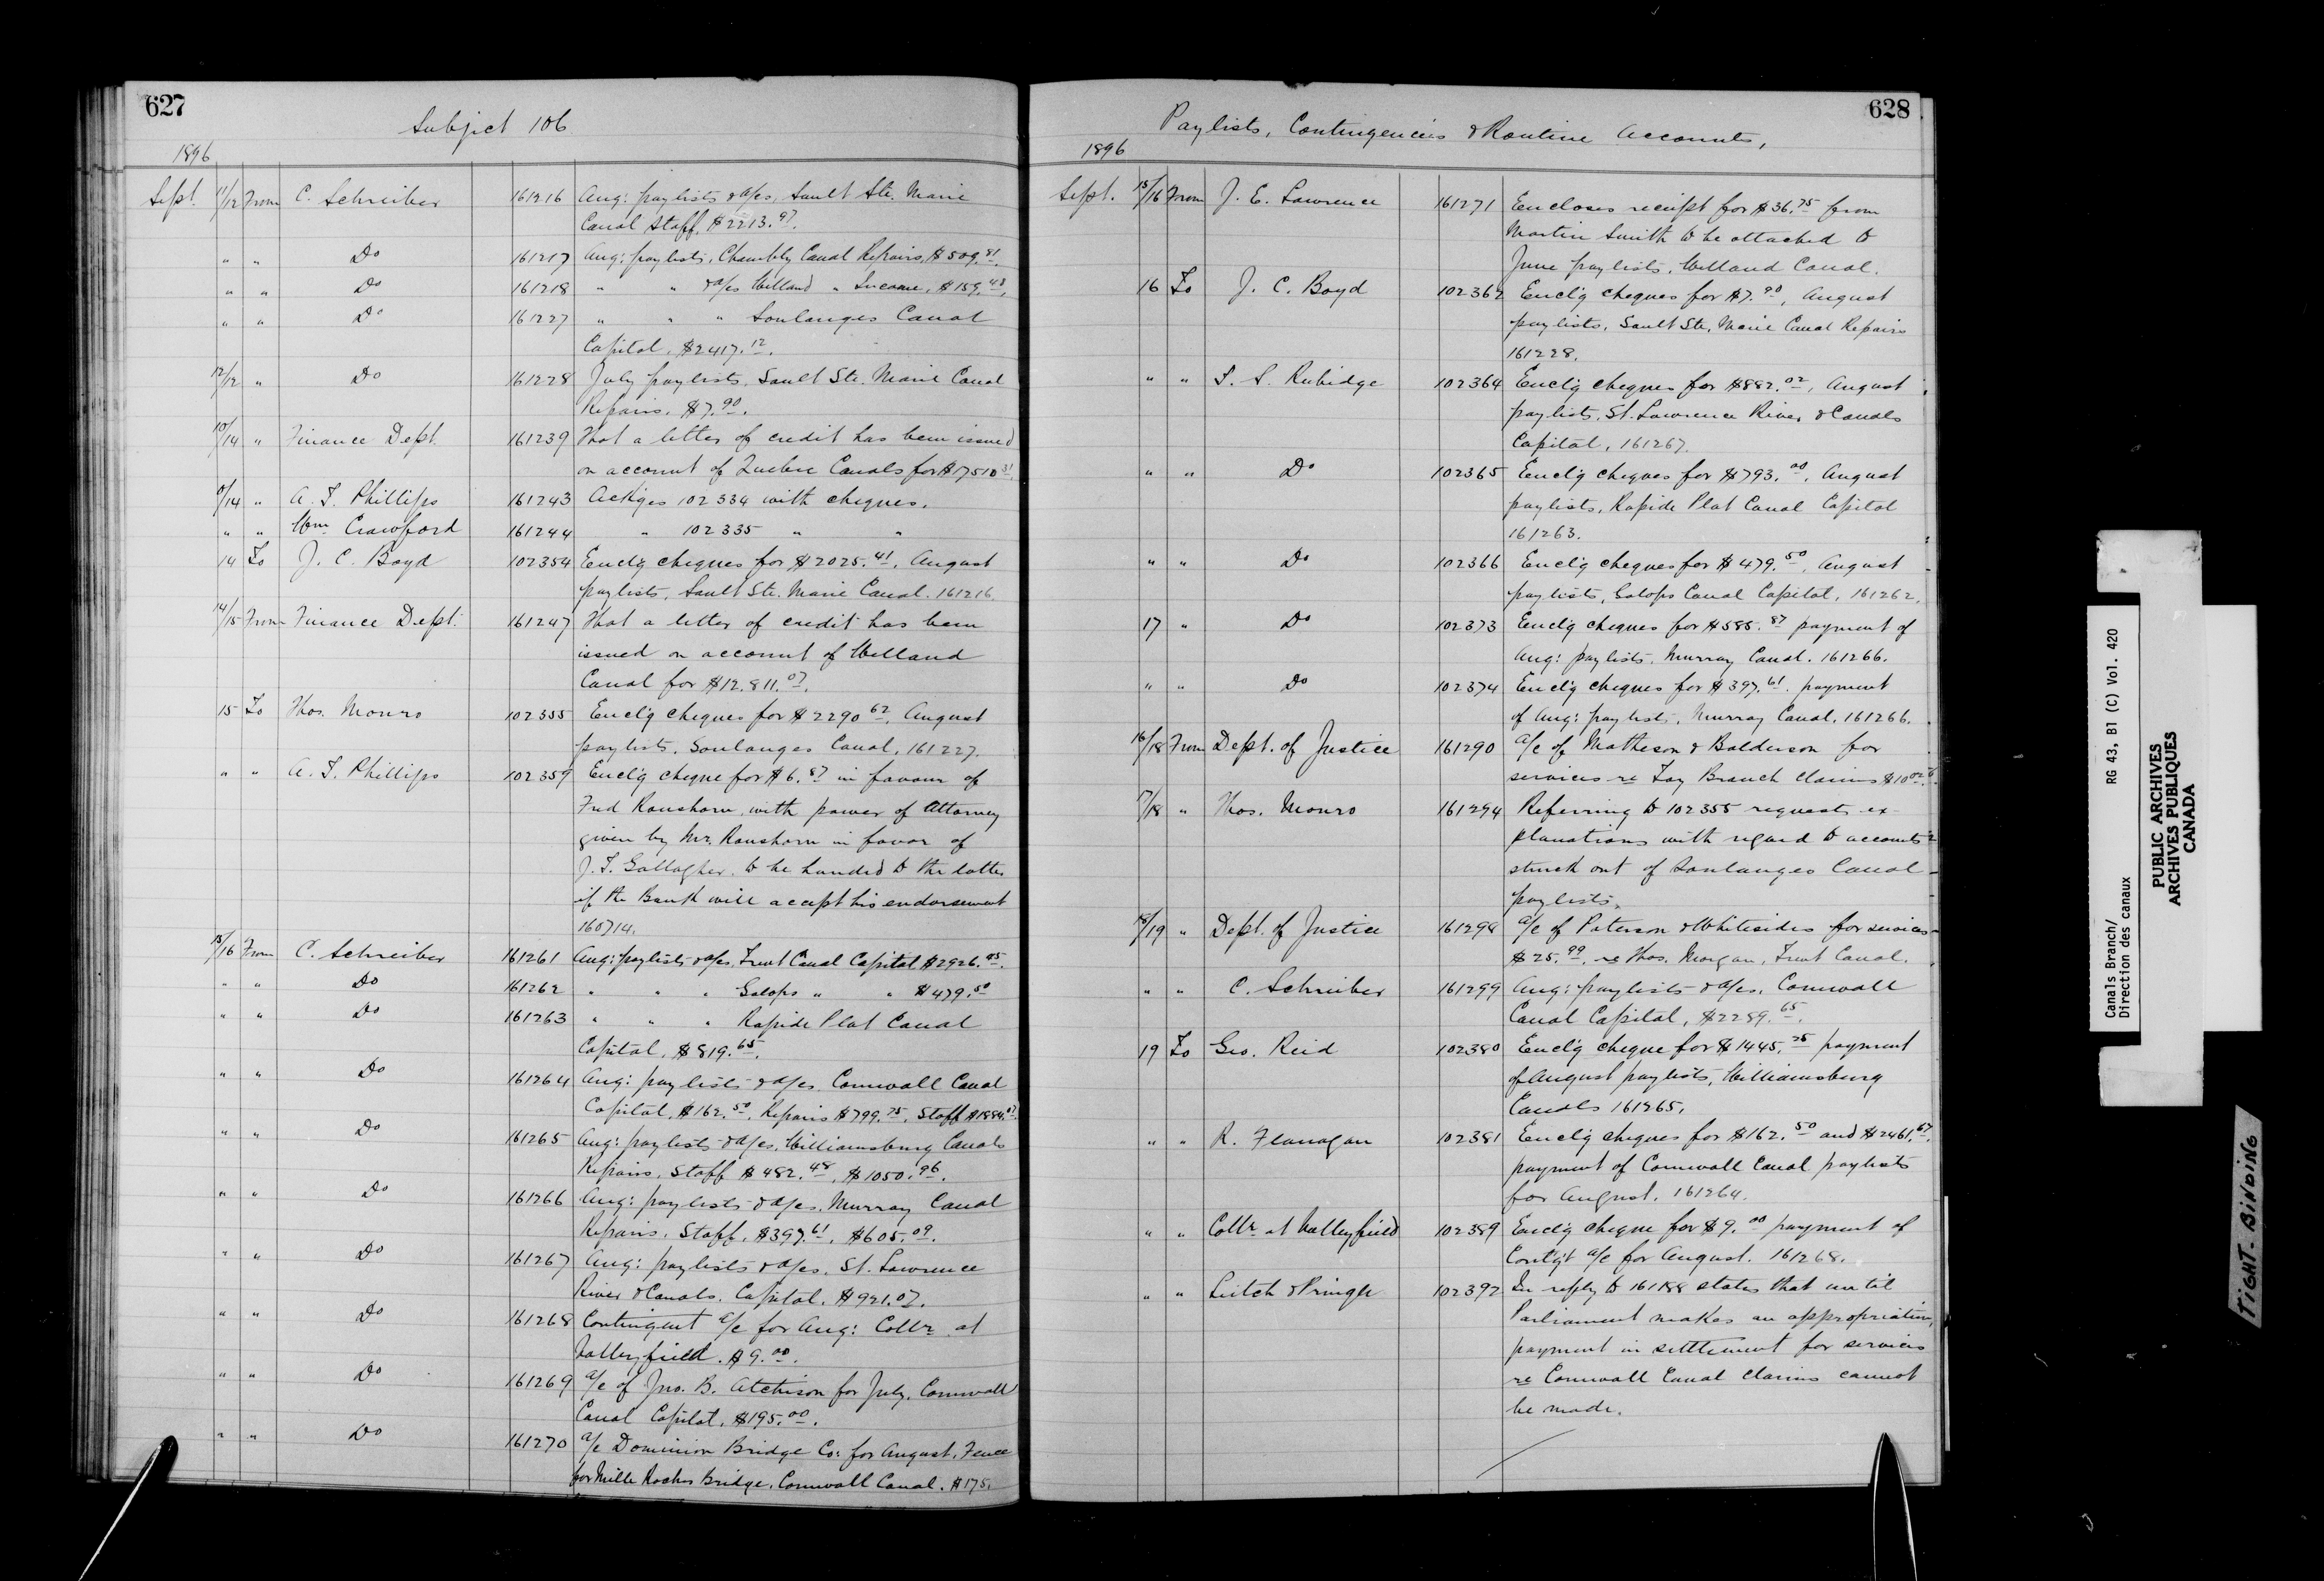 627
Subject 106
1896
Sept. 11/12 From C. Schreiber 161216 Aug: paylists & a/cs, Sault Ste. Marie
Canal Staff. $2213.97.
" " Do 161217 Aug: paylists, Chambly Canal Repairs, $509.81.
" " Do 161218 " " & a/cs Welland " Income, $159.43.
" " Do 161227 " " " Soulanges Canal
Capital, $2417.12.
12/12 " Do 161228 July paylists, Sault Ste. Marie Canal
Repairs. $7.90.
10/14 " Finance Dept. 161239 That a letter of credit has been issued
on account of Quebec Canals for $17510.31.
/14 " A. T. Phillips 161243 Ackges 102334 with cheques.
" " Wm. Crawford 161244 " 102335 " "
14 To J. C. Boyd 102354 Enclg cheques for $2025.41, August
paylists, Sault Ste. Marie Canal. 161216.
14/15 From Finance Dept. 161247 That a letter of credit has been
issued on account of Welland
Canal for $12.811.07.
15 To Thos. Monro 102355 Encl'g cheques for $2290.62, August
paylists, Soulanges Canal, 161227.
" " A. T. Phillips 102359 Encl'g cheque for $6.87 in favour of
Fred Ranshorn, with power of Attorney
given by Mr. Ranshorn in favor of
J. T. Gallagher, to be handed to the latter
if the Bank will accept his endorsement
160714.
15/16 From C. Schreiber 161261 Aug: paylists & a/cs. Trent Canal Capital $2926.95.
" " Do 161262 " " " Galops " " $479.50
" " Do 161263 " " " Rapide Plat Canal
Capital, $819.65.
" " Do 161264 Aug: paylists & a/cs Cornwall Canal
Capital, $162.50, Repairs $799.75, Staff $1884.07.
" " Do 161265 Aug: paylists & a/cs, Williamsburg Canals
Repairs, Staff $482.48, $1050.96.
" " Do 161266 Aug: paylists & a/cs, Murray Canal
Repairs, Staff, $397.61, $605.09.
" " Do 161267 Aug: paylists & a/cs, St. Lawrence
River & Canals. Capital. $921.07.
" " Do 161268 Contingent a/c for Aug: Collr. at
Valleyfield. $9.00.
" " Do 161269 a/c of Jno. B. Atchison for July. Cornwall
Canal Capital, $195.00.
" " Do 161270 a/c Dominion Bridge Co: for August, Fence
for Mille Roches Bridge, Cornwall Canal. $175.
628
Paylists, Contingencies & Routine Accounts,
1896
Sept. 15/16 From J. E. Lawrence 161271 Encloses receipt for $36.75 from
Martin Smith to be attached to
June paylists, Welland Canal.
16 To J. C. Boyd 102362 Encl'g cheques for $7.90, August
paylists, Sault Ste. Marie Canal Repairs
161228.
" " T. S. Rubidge 102364 Encl'g cheques for $882.02, August
paylists, St. Lawrence River & Canals
Capital, 161267.
" " Do 102365 Encl'g cheques for $793.00, August
paylists, Rapide Plat Canal Capital
161263.
" " Do 102366 Encl'g cheques for $479.50, August
paylists, Galops Canal Capital, 161262.
17 " Do 102373 Encl'g cheques for $585.87 payment of
Aug: paylists, Murray Canal. 161266.
" " Do 102374 Encl'g cheques for $397.61. payment
of Aug: paylists, Murray Canal, 161266.
16/18 From Dept. of Justice 161290 a/c of Matheson & Balderson for
services re Tay Branch Claims
17/18 " Thos. Monro 161294 Referring to 102355 requests ex-
planations with regard to accounts
struck out of Soulanges Canal
paylists.
18/19 " Dept. of Justice 161298 a/c of Paterson & Whitesides for services
$25.99, re Thos. Morgan, Trent Canal.
" " C. Schreiber 161299 Aug: paylists & a/cs. Cornwall
Canal Capital, $2289.65.
19 To Geo. Reid 102380 Encl'g cheque for $1445.25 payment
of August paylists, Williamsburg
Canals 161265.
" " R. Flanagan 102381 Encl'g cheques for $162.50 and $2461.67.
payment of Cornwall Canal paylists
for August. 161264.
" " Collr. at Valleyfield 102389 Encl'g cheque for $9.00 payment of
Contg't a/c for August. 161268.
" " Leitch & Pringle 102392 In reply to 161188 states that until
Parliament makes an appropriation,
payment in settlement for services
re Cornwall Canal Claims cannot
be made.
Canals Branch/ RG 43, B1 (C) Vol. 420
Direction des canaux
PUBLIC ARCHIVES
ARCHIVES PUBLIQUES
CANADA
TIGHT-BINDING